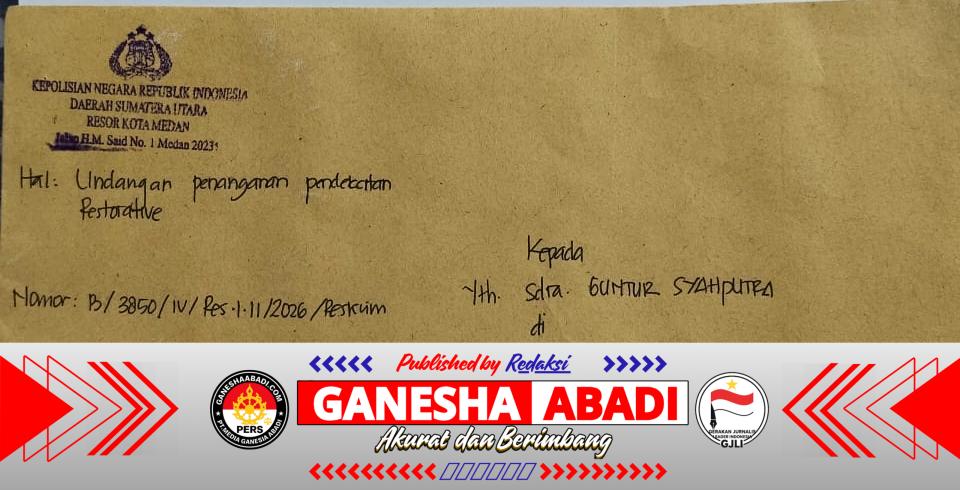 KEPOLISIAN NEGARA REPUBLIK INDONESIA
DAERAH SUMATERA UTARA
RESOR KOTA MEDAN
Jalan H.M. Said No. 1 Medan 20231
Hal: Undangan penanganan pendekatan
Restorative
Kepada
Yth. Sdra. GUNTUR SYAHPUTRA
di
Nomor: B/3850/IV/Res.1.11/2026/Reskrim
Published by Redaksi
GANESHA ABADI
Akurat dan Berimbang
GANESHAABADI.COM
PERS
PT MEDIA GANESIA ABADI
GERAKAN JURNALIS
LEADER INDONESIA
GJLI